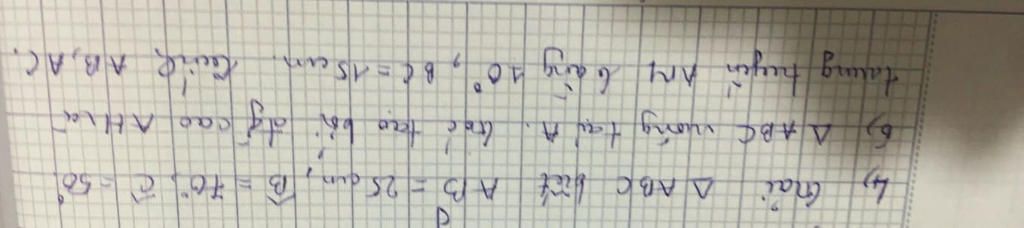 4, Giải Δ ABC biết AB = 25 cm, B̂ = 70°, Ĉ = 50°
5) Δ ABC vuông tại A. Góc tạo bởi đg cao AH và
trung tuyến AM bằng 10°, BC = 15 cm. Tính AB, AC.